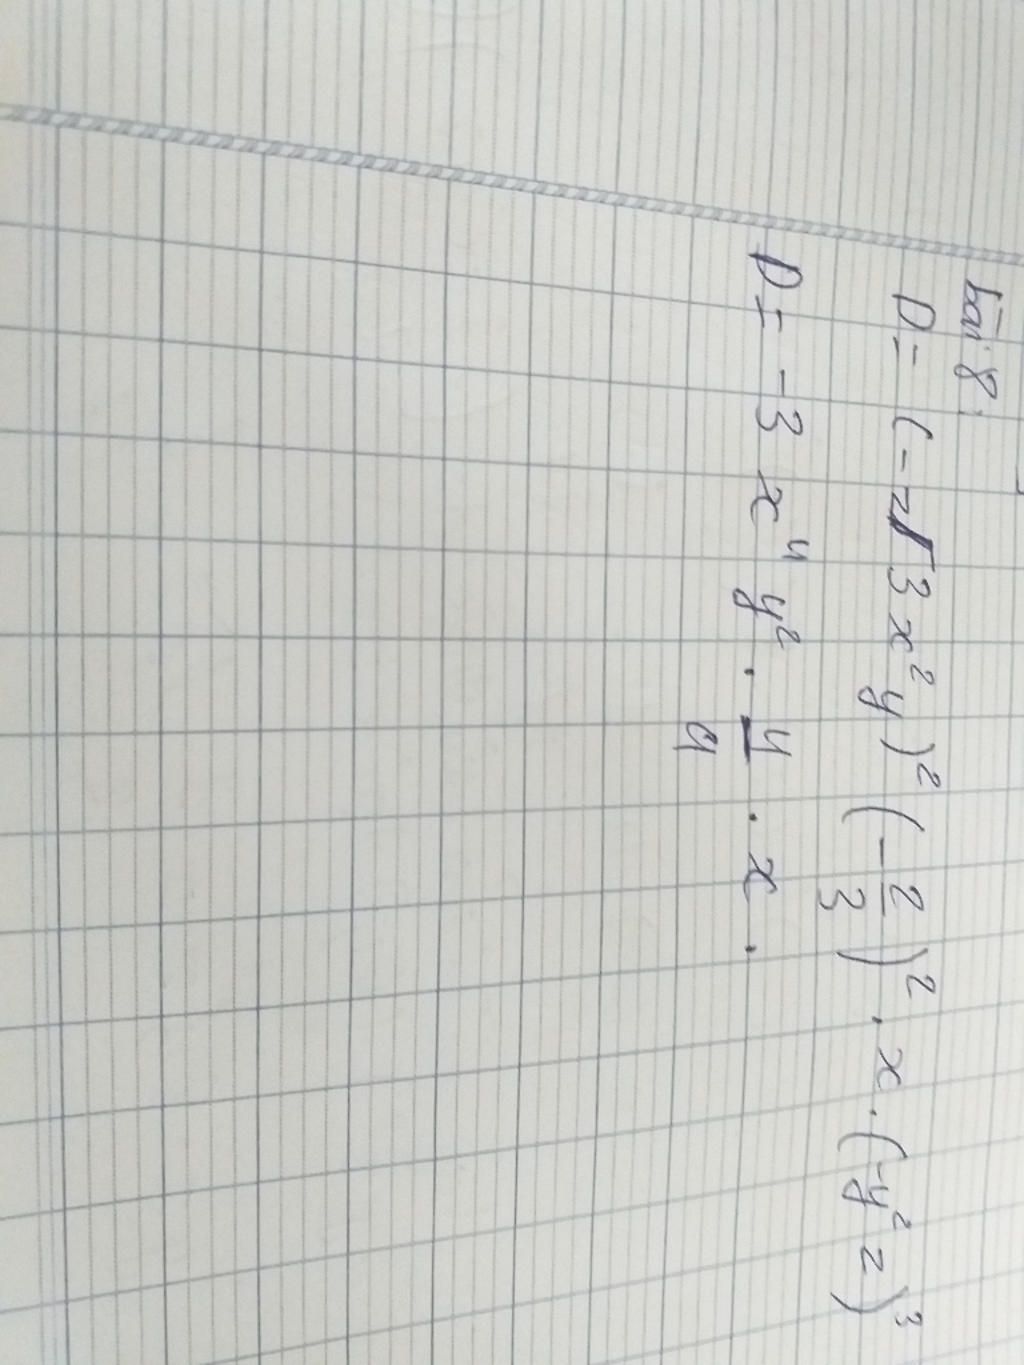 bài 8:
D = (-√3 x² y)² (-2/3)² . x . (-y² z)³
D = -3 x⁴ y² . 4/9 . x .